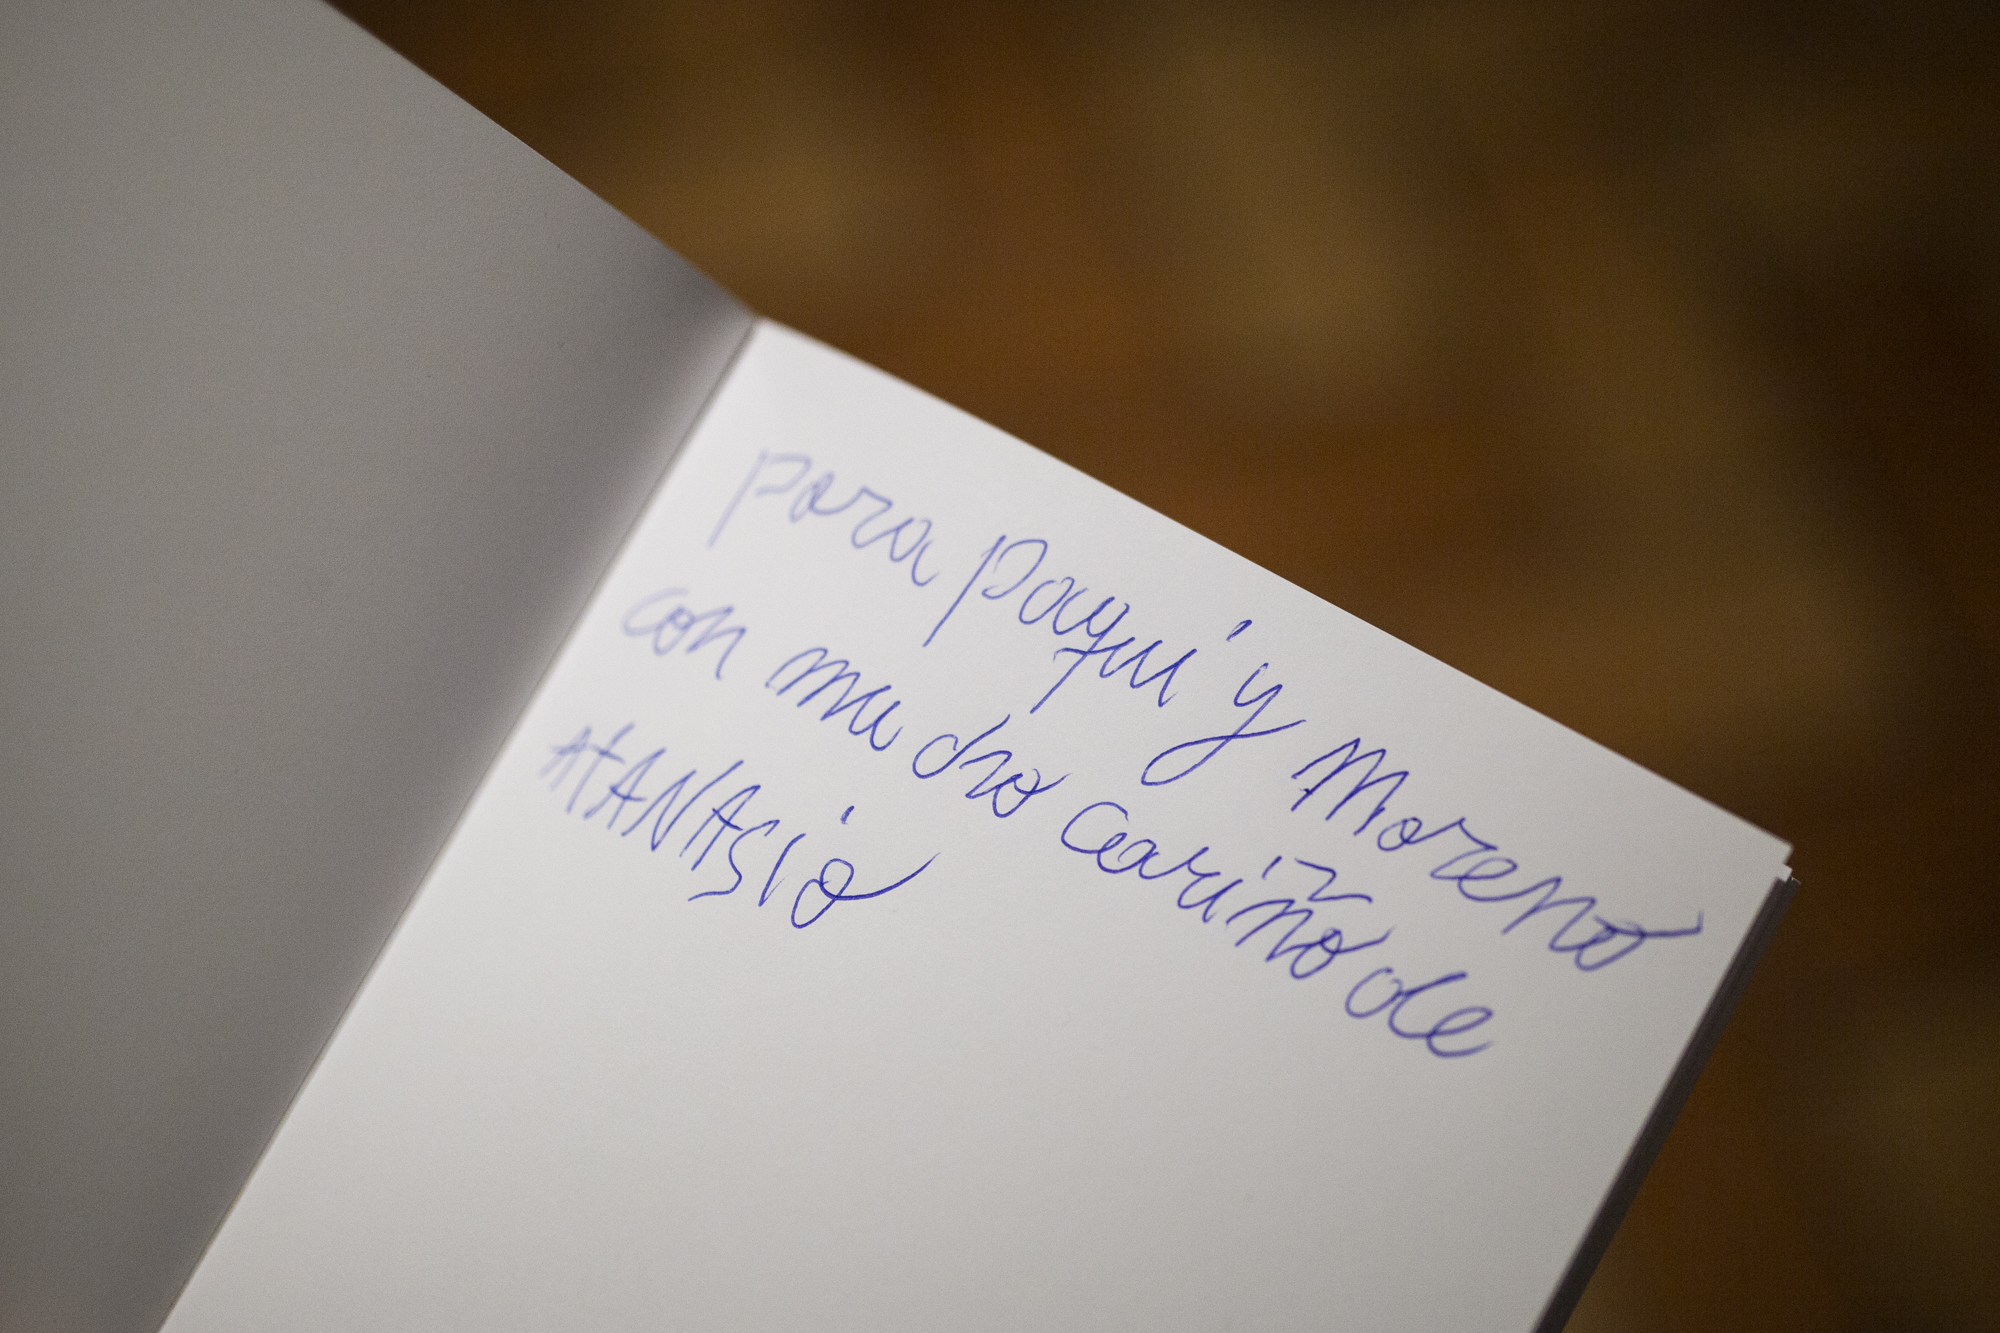 para paqui y Moreno
con mucho cariño de
ATANASiO